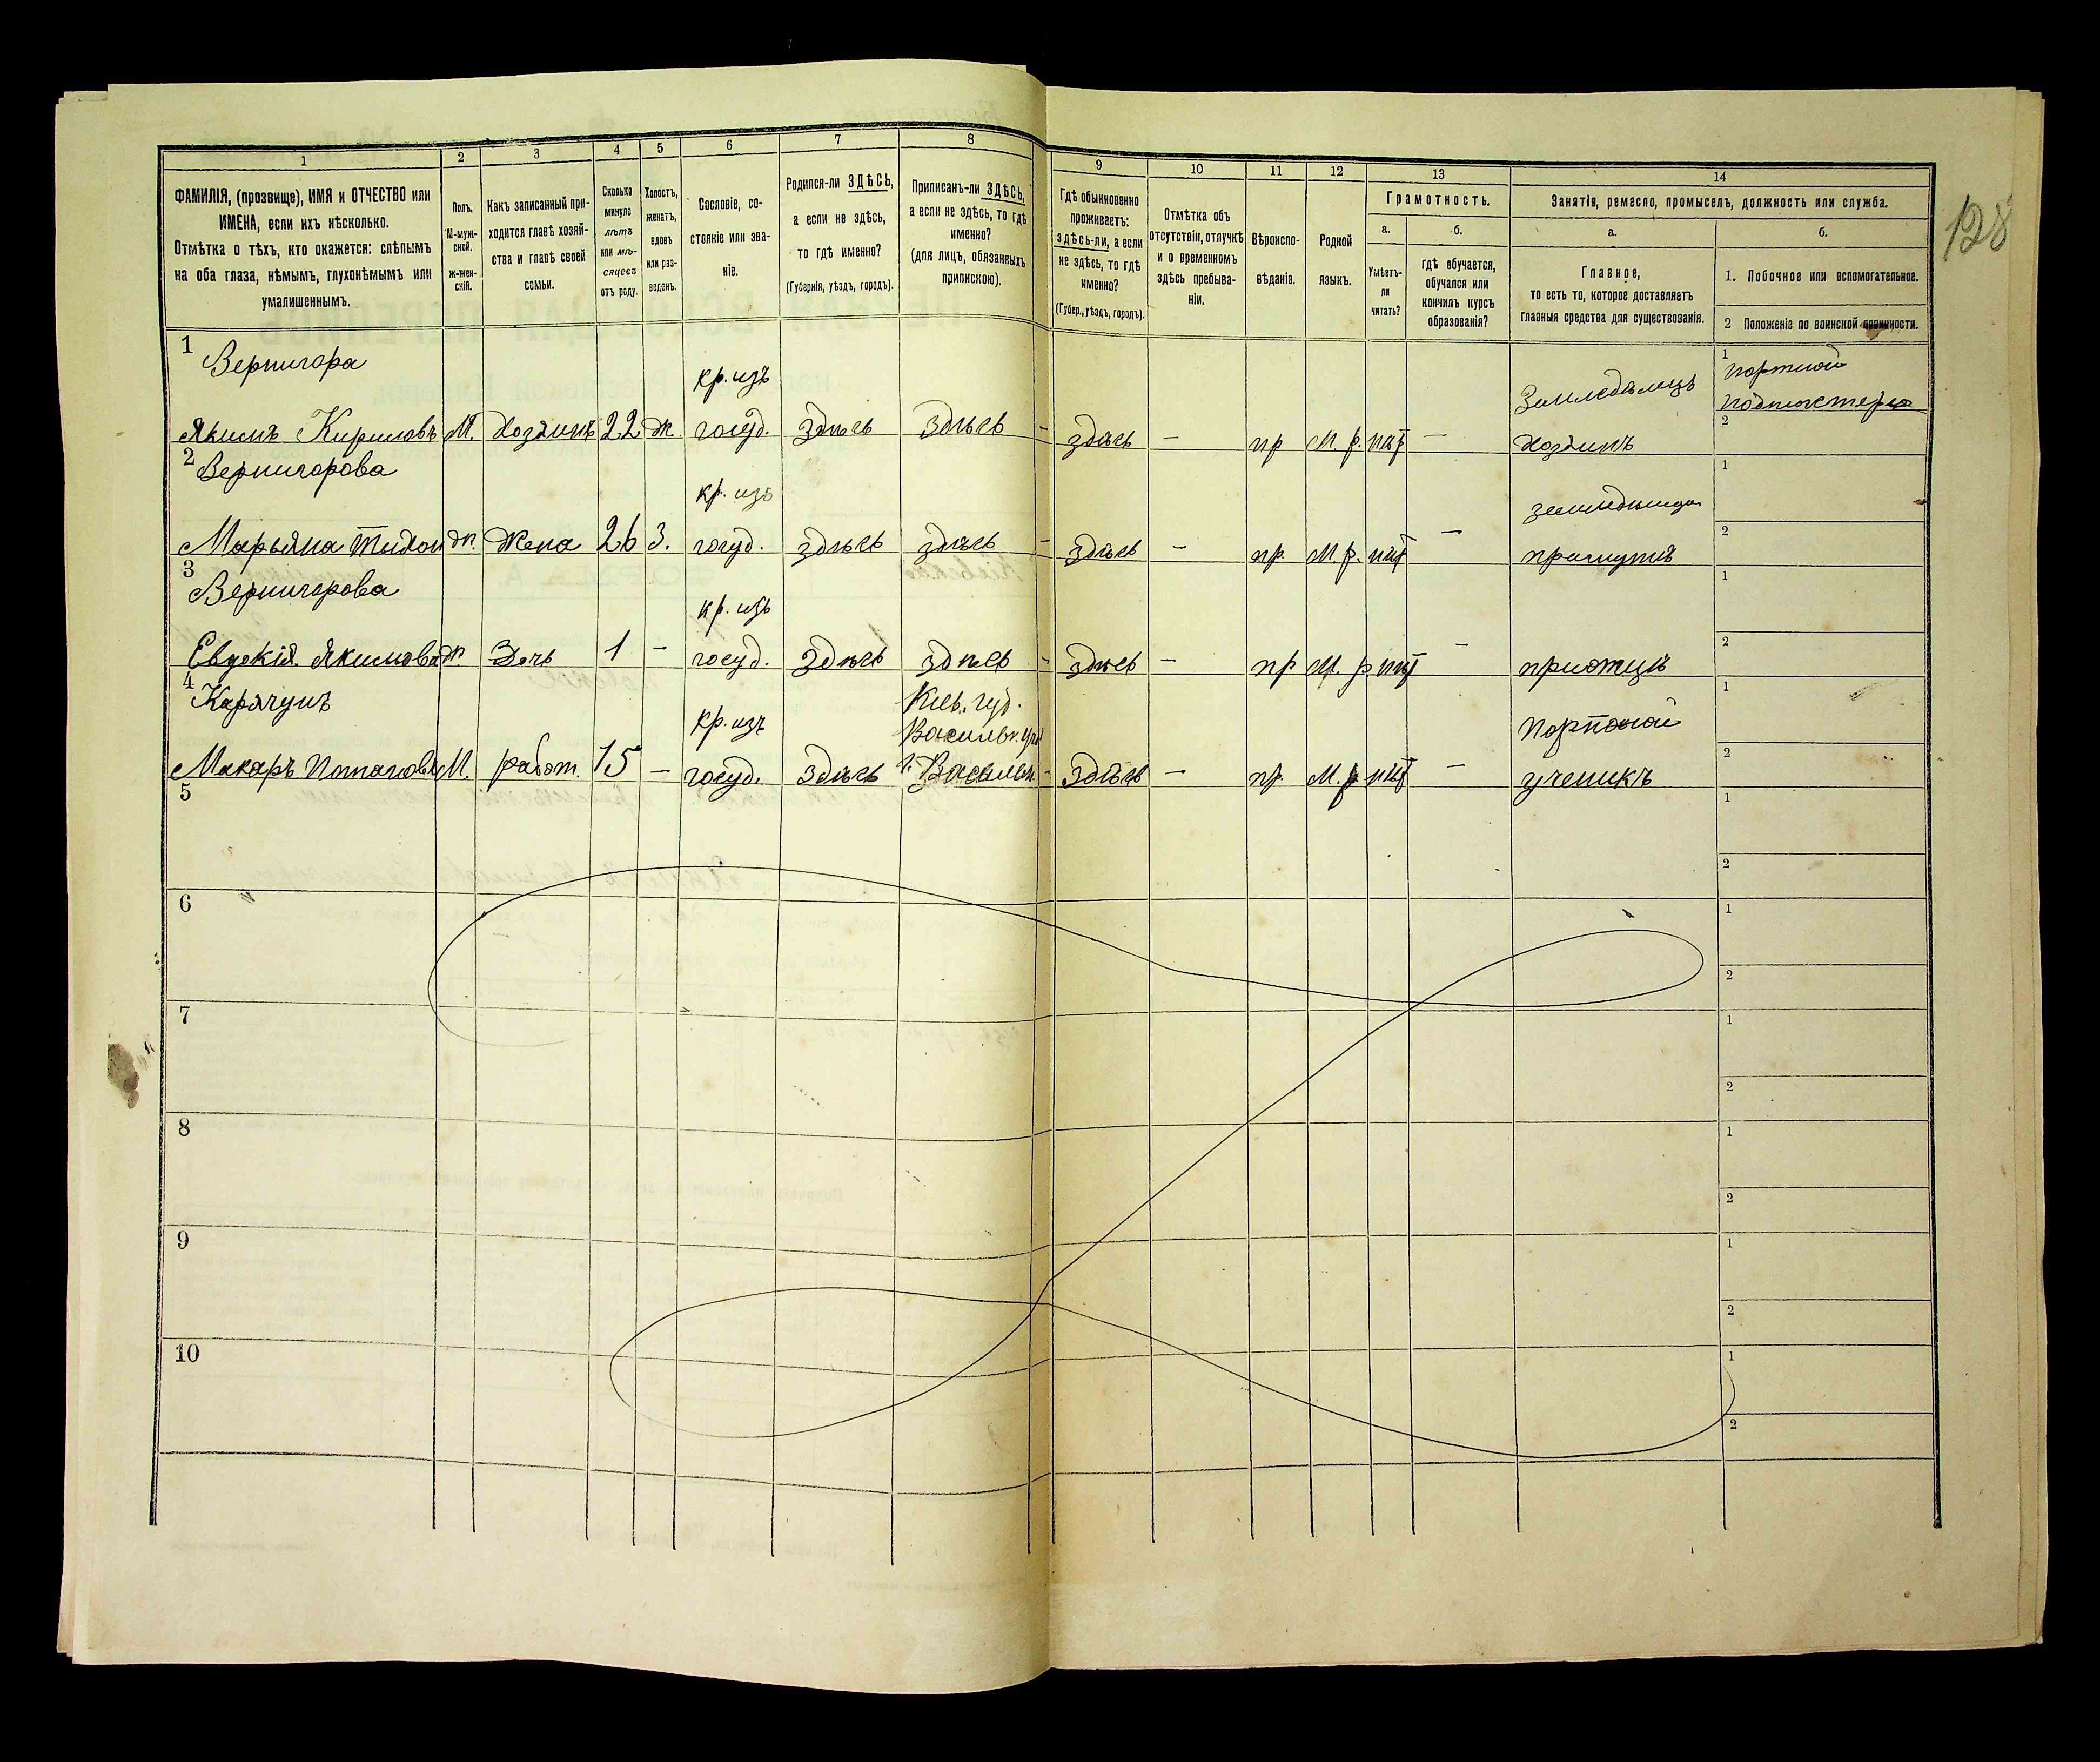 128
1
2
3
4
5
6
7
8
9
10
11
12
13
14
ФАМИЛІЯ, (прозвище), ИМЯ и ОТЧЕСТВО или
ИМЕНА, если ихъ нѣсколько.
Отмѣтка о тѣхъ, кто окажется: слѣпымъ
на оба глаза, нѣмымъ, глухонѣмымъ или
умалишеннымъ.
Полъ.
М-муж-
ской.
ж-жен-
скій.
Какъ записанный при-
ходится главѣ хозяй-
ства и главѣ своей
семьи.
Сколько
минуло
лѣтъ
или мѣ-
сяцевъ
отъ роду.
Холостъ,
женатъ,
вдовъ
или раз-
веденъ.
Сословіе, со-
стояніе или зва-
ніе.
Родился-ли ЗДѢСЬ,
а если не здѣсь,
то гдѣ именно?
(Губернія, уѣздъ, городъ).
Приписанъ-ли ЗДѢСЬ,
а если не здѣсь, то гдѣ
именно?
(для лицъ, обязанныхъ
припискою).
Гдѣ обыкновенно
проживаетъ:
здѣсь-ли, а если
не здѣсь, то гдѣ
именно?
(Губер., уѣздъ, городъ).
Отмѣтка объ
отсутствіи, отлучкѣ
и о временномъ
здѣсь пребыва-
ніи.
Вѣроиспо-
вѣданіе.
Родной
языкъ.
Грамотность.
а.
Умѣетъ-
ли
читать?
б.
гдѣ обучается,
обучался или
кончилъ курсъ
образованія?
Занятіе, ремесло, промыселъ, должность или служба.
а.
Главное,
то есть то, которое доставляетъ
главныя средства для существованія.
б.
1. Побочное или вспомогательное.
2 Положеніе по воинской повинности.
1
Вернигора
кр. изъ
Земледѣлецъ
1
Портной
подмастерье
Якимъ Кириловъ М. Хозяинъ 22 ж. госуд. Здѣсь Здѣсь - здѣсь — пр М. р. нѣт — Хозяинъ
2
2
Вернигорова
кр. изъ
1
Марьяна Тихон ж. Жена 26 З. госуд. здѣсь здѣсь - здѣсь — пр. М. р. нѣт —
2
3
Вернигорова
кр. изъ
1
Евдокія Якимова ж Дочь 1 — госуд. Здѣсь здѣсь - здѣсь — пр М. р. нѣт — приотцѣ
2
4
Карячунъ
кр. изъ
Кіев. губ.
Васильк. уѣз
Портной
1
Макаръ М. работ. 15 — госуд. Здѣсь г. Васильк. - Здѣсь — пр. М. р нѣт — ученикъ
2
5
1
2
6
1
2
7
1
2
8
1
2
9
1
2
10
1
2